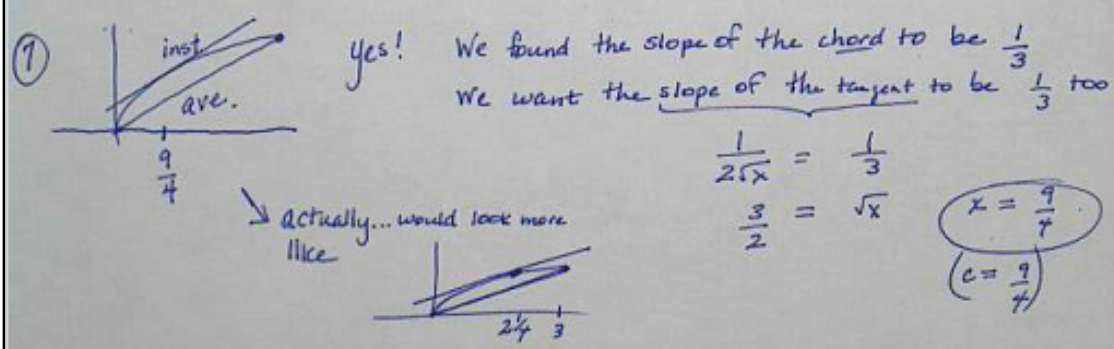 7
inst.
ave.
9/4
yes! We found the slope of the chord to be 1/3
We want the slope of the tangent to be 1/3 too
1/(2√x) = 1/3
3/2 = √x
x = 9/4.
(c = 9/4)
actually... would look more
like
2 1/4 3